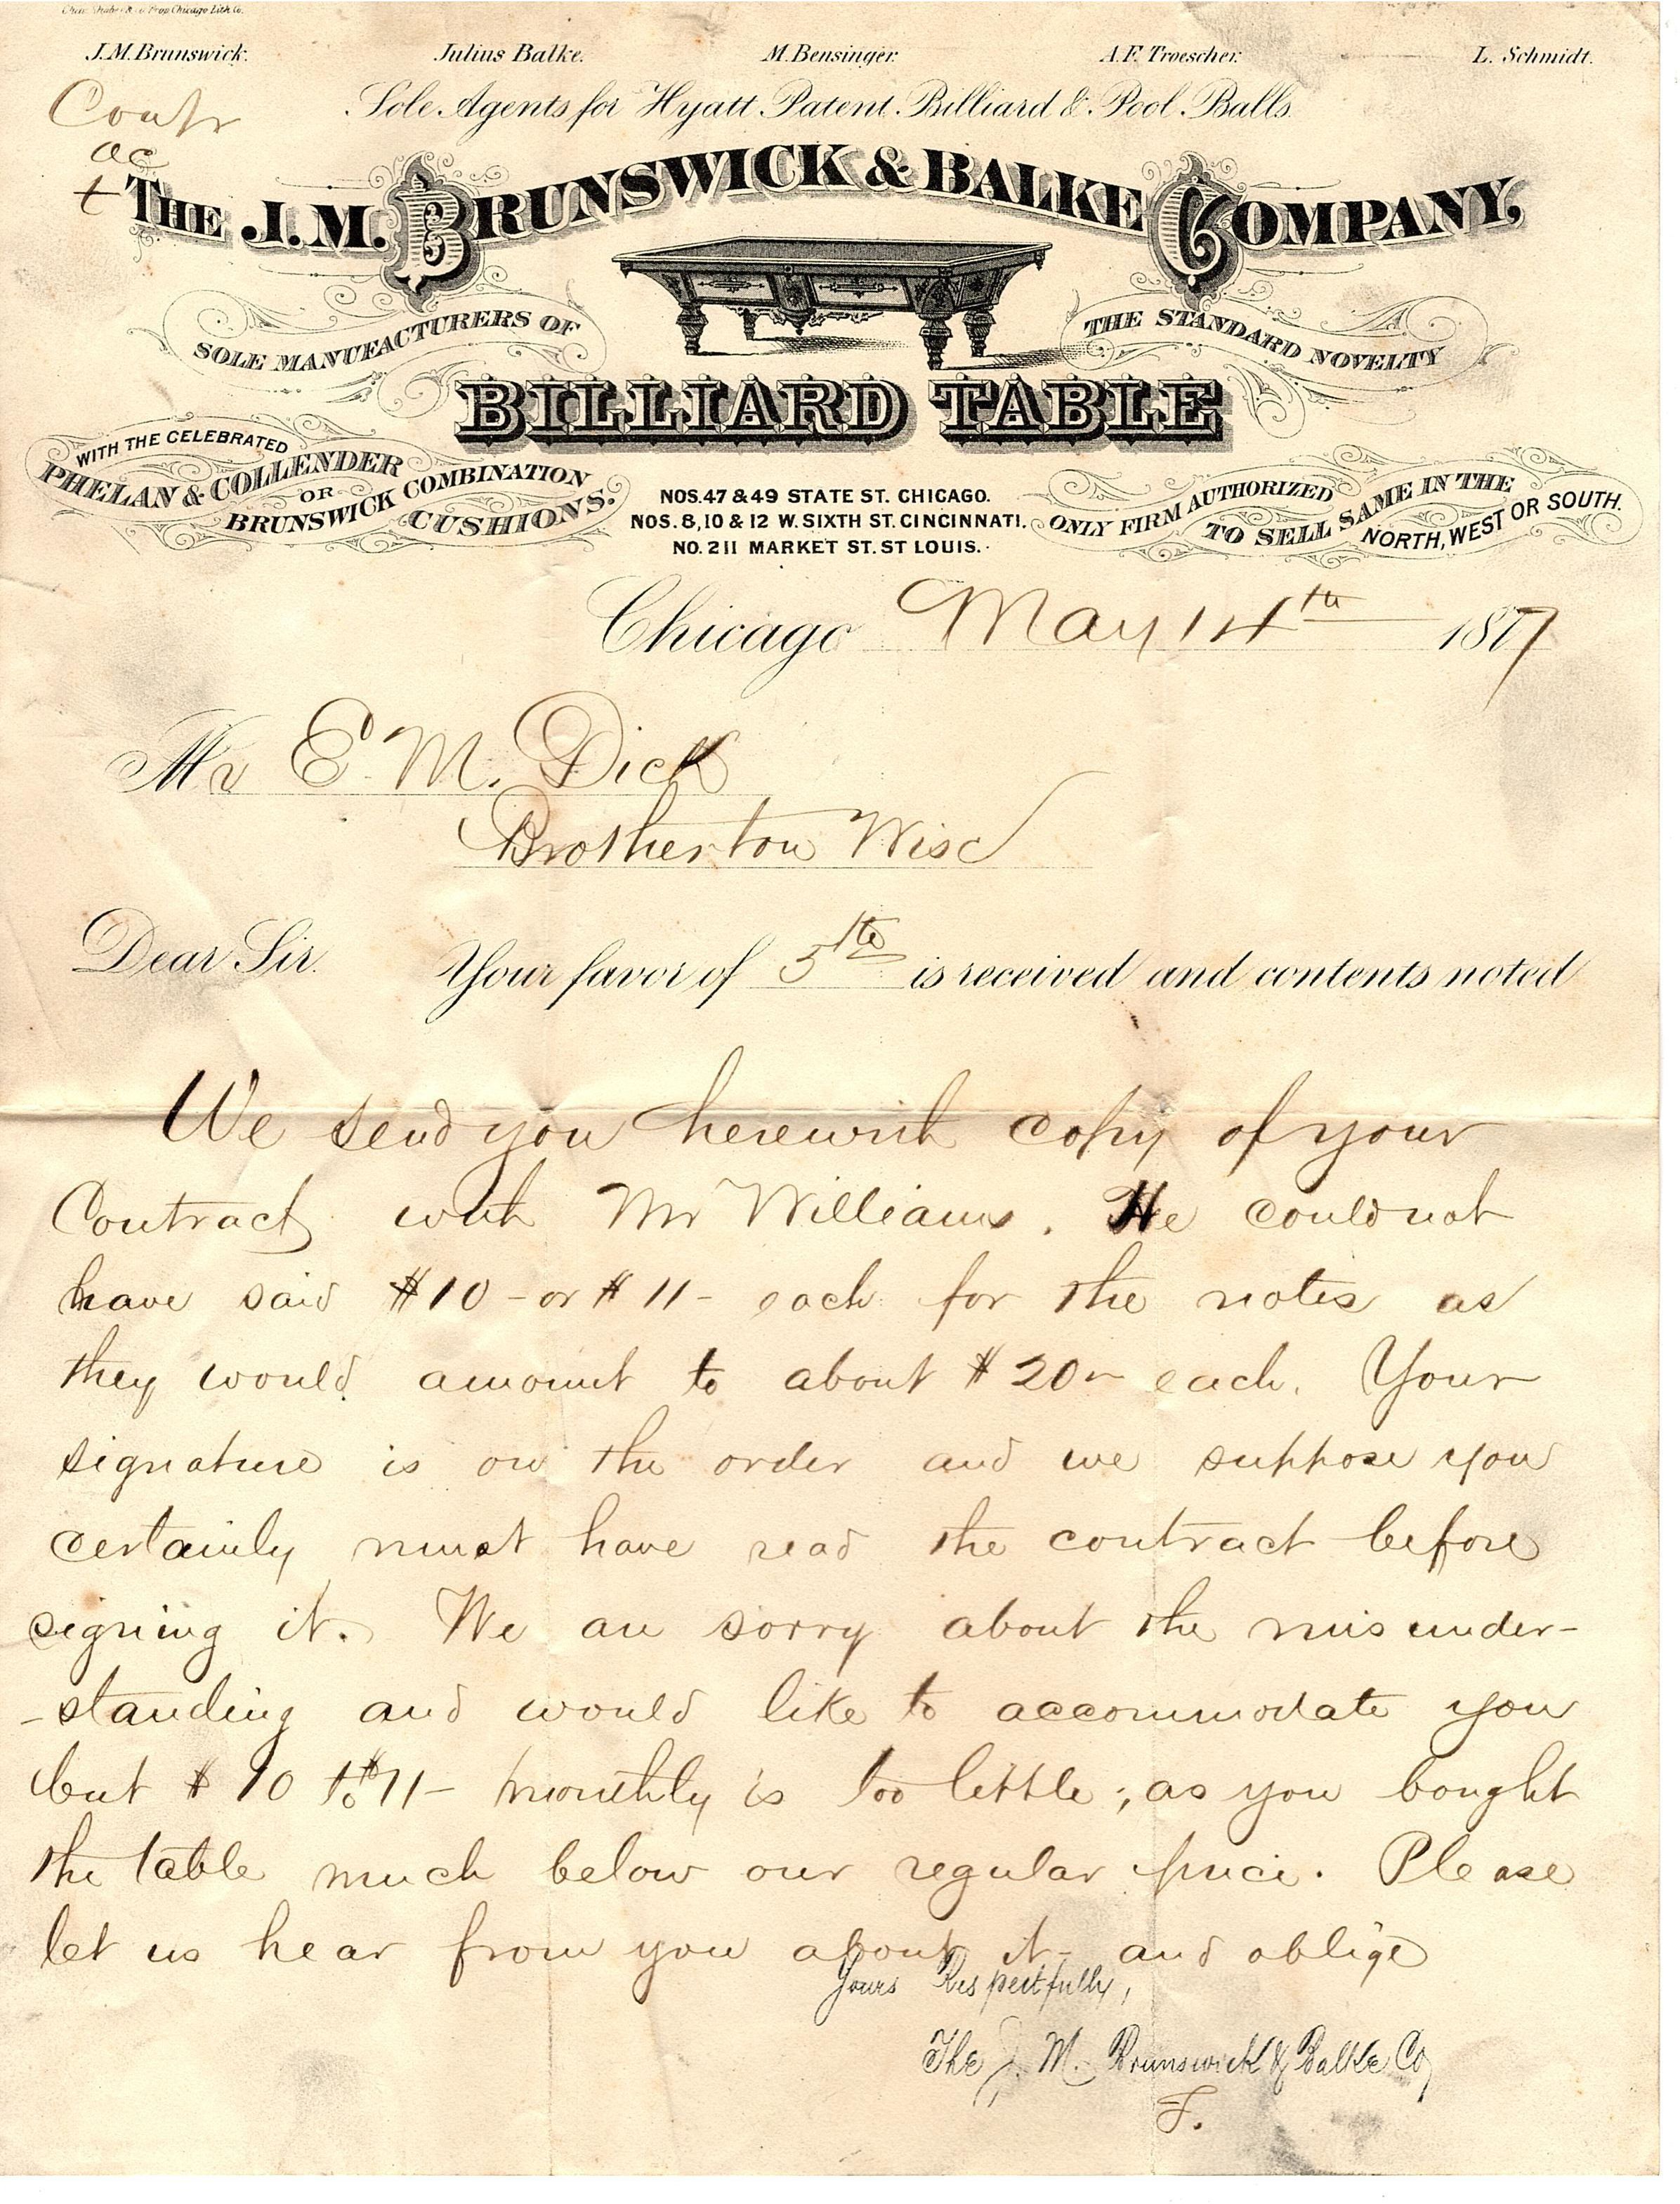 Prop Chicago Lith Co.
J.M. Brunswick. Julius Balke. M. Bensinger. A.F. Troescher. L. Schmidt.
Sole Agents for Hyatt Patent Billiard & Pool Balls.
THE J. M. BRUNSWICK & BALKE COMPANY,
SOLE MANUFACTURERS OF
THE STANDARD NOVELTY
BILLIARD TABLE
WITH THE CELEBRATED
PHELAN & COLLENDER
OR
BRUNSWICK COMBINATION
CUSHIONS.
NOS. 47 & 49 STATE ST. CHICAGO.
NOS. 8, 10 & 12 W. SIXTH ST. CINCINNATI.
NO. 211 MARKET ST. ST LOUIS.
ONLY FIRM AUTHORIZED
TO SELL SAME IN THE
NORTH, WEST OR SOUTH.
Chicago May 14th 1877
Mr E. M. Dick
Brotherton Wisc
Dear Sir. Your favor of 5th is received and contents noted
We send you herewith copy of your
Contract with Mr Williams. He could not
have said $10 - or $11 - each for the notes as
they would amount to about $20 - each. Your
signature is on the order and we suppose you
certainly must have read the contract before
signing it. We are sorry about the misunder-
-standing and would like to accommodate you
but $10 to $11 - monthly is too little; as you bought
the table much below our regular price. Please
let us hear from you about it - and oblige
Yours Respectfully,
The J. M. Brunswick & Balke Co
F.